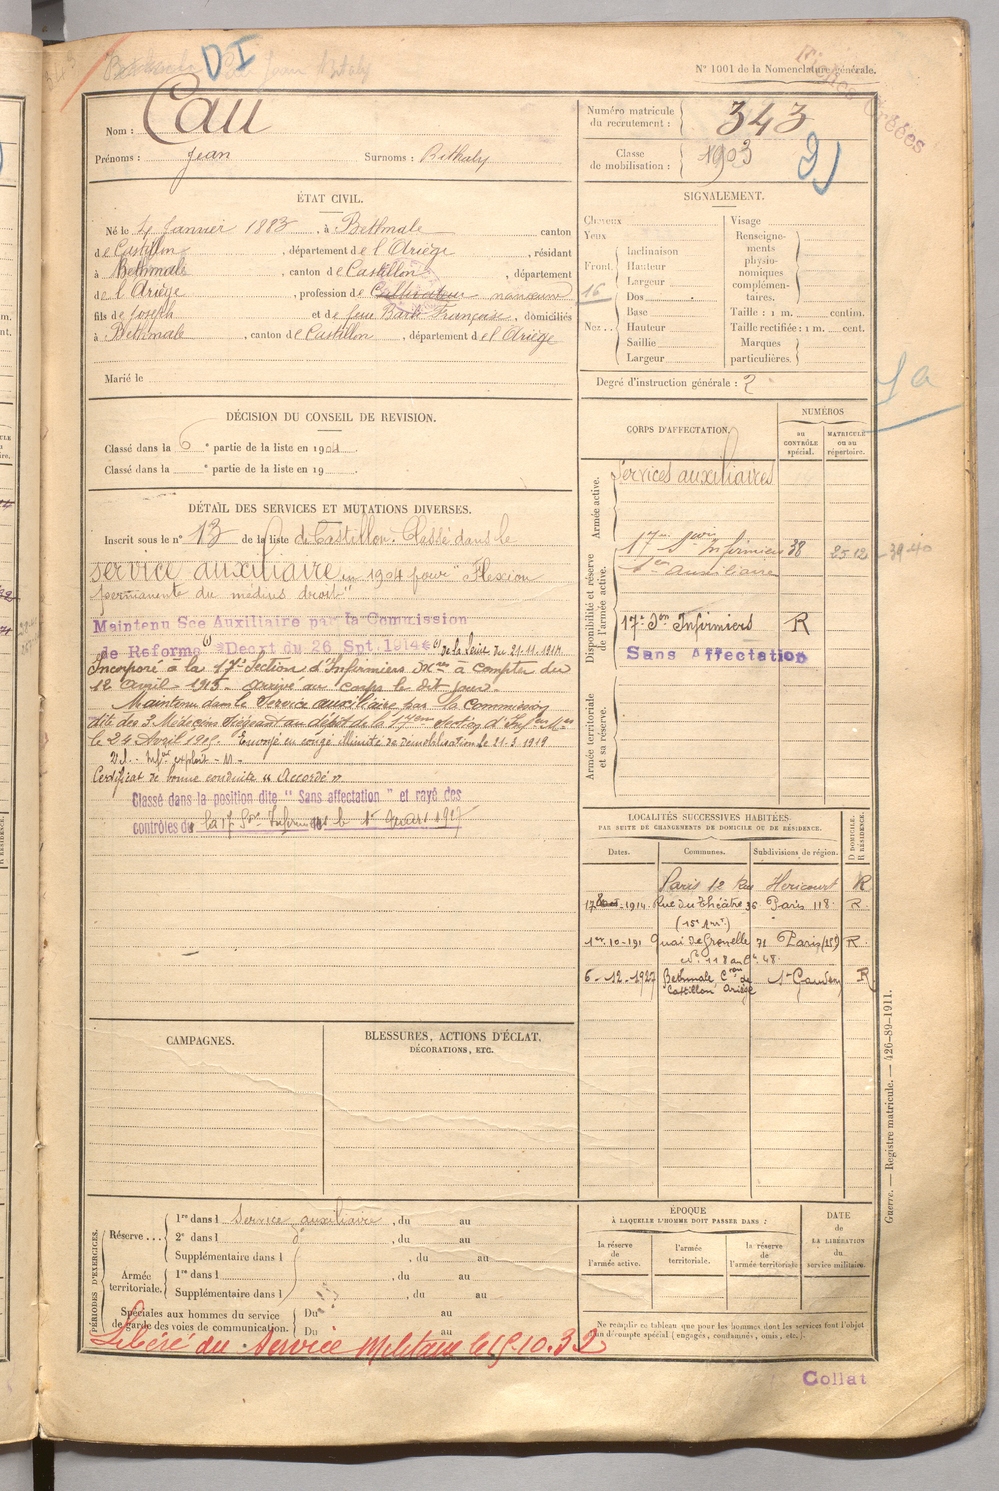 DI
N° 1001 de la Nomenclature générale.
Fiches Créées
Nom : Cau
Prénoms : Jean Surnoms : Bethaly
Numéro matricule du recrutement : 343
Classe de mobilisation : 1903
ÉTAT CIVIL.
Né le 4 Janvier 1883, à Bethmale canton
de Castillon, département de l'Ariège, résidant
à Bethmale, canton de Castillon, département
de l'Ariège, profession de Cultivateur manœuvre
fils de Joseph et de feue Barte Françoise, domiciliés
à Bethmale, canton de Castillon, département de l'Ariège
Marié le
SIGNALEMENT.
Cheveux
Yeux
Front.
Inclinaison
Hauteur
Largeur
16
Nez..
Dos
Base
Hauteur
Saillie
Largeur
Visage
Renseignements physionomiques complémentaires.
Taille : 1 m. centim.
Taille rectifiée : 1 m. cent.
Marques particulières.
Degré d'instruction générale : 2
DÉCISION DU CONSEIL DE REVISION.
Classé dans la 6e partie de la liste en 1904
Classé dans la e partie de la liste en 19
DÉTAIL DES SERVICES ET MUTATIONS DIVERSES.
Inscrit sous le n° 13 de la liste de Castillon. Classé dans le
service auxiliaire en 1904 pour "Flexion
permanente du médius droit"
Maintenu Sce Auxiliaire par la Commission
de Reforme (1) *Decrt du 26 Spt.1914* (1) de la Seine du 21.11.1914
Incorporé à la 17e Section d'Infirmiers Mres à compter du
12 avril 1915. arrivé au corps le dit jour.
Maintenu dans le Service auxiliaire par la Commission
dite des 3 Médecins siégeant au dépôt de la 17eme Section d'Infers Mres
le 24 Avril 1915. Envoyé en congé illimité de démobilisation le 21-3 1919
Certificat de bonne conduite "Accordé"
Classé dans la position dite " Sans affectation " et rayé des
contrôles de la 17e Son Infirmiers le 1er Mars 1927
CORPS D'AFFECTATION.
NUMÉROS
au CONTRÔLE spécial.
MATRICULE ou au répertoire.
Armée active.
Services auxiliaires
Disponibilité et réserve de l'armée active.
Infirmiers 38 2512 -39-40
auxiliaire
17e Son Infirmiers R
Sans Affectation
Armée territoriale et sa réserve.
LOCALITÉS SUCCESSIVES HABITÉES
PAR SUITE DE CHANGEMENTS DE DOMICILE OU DE RÉSIDENCE.
Dates. Communes. Subdivisions de région. D DOMICILE. R RÉSIDENCE.
Paris 12 Rue Hericourt R
1914. Rue du Théâtre 36 Paris 118 R.
(15e arrt)
1er-10-191 Quai de Grenelle 71 Paris (15e) R.
6-12-1927 Bethmale Con de St Gaudens R
Castillon Ariège
CAMPAGNES.
BLESSURES, ACTIONS D'ÉCLAT,
DÉCORATIONS, ETC.
PÉRIODES D'EXERCICES.
Réserve ...
1re dans l Service auxiliaire, du au
2e dans l do, du au
Supplémentaire dans l, du au
Armée territoriale.
1re dans l, du au
Supplémentaire dans l, du au
Spéciales aux hommes du service de garde des voies de communication.
Du au
Du au
Libéré du Service Militaire le 15-10.32
ÉPOQUE
À LAQUELLE L'HOMME DOIT PASSER DANS :
la réserve de l'armée active.
l'armée territoriale.
la réserve de l'armée territoriale
DATE de LA LIBÉRATION du service militaire.
Ne remplir ce tableau que pour les hommes dont les services font l'objet
d'un décompte spécial (engagés, condamnés, omis, etc.).
Guerre. — Registre matricule. — 426-89-1911.
Collat